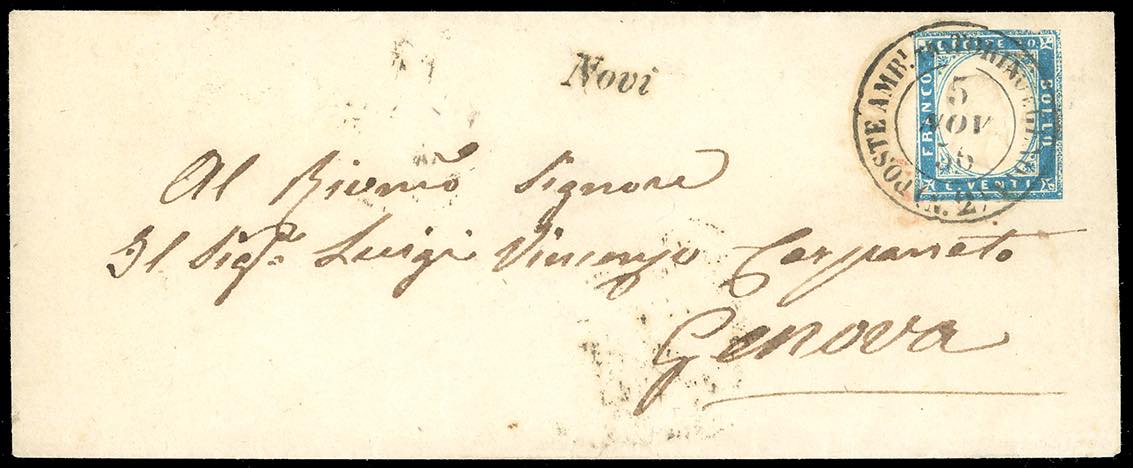 Novi
FRANCO
BOLLO
C. VENTI
POSTE AMB.
5
NOV
56
N. 2
Al Signore
Il Sig.re Luigi Vincenzo
Genova